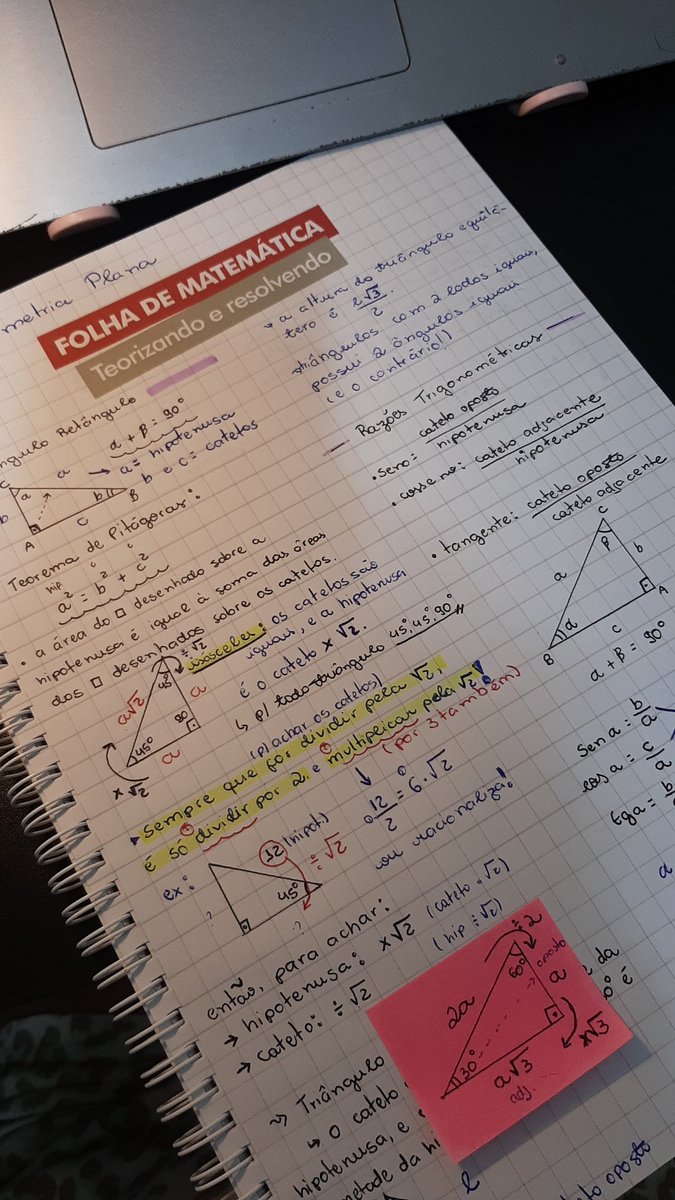 metria Plana
FOLHA DE MATEMÁTICA
Teorizando e resolvendo
ngulo Retângulo
α + β = 90°
→ a = hipotenusa
b e c = catetos
C
a
α
b
b
β
B
A
c
Teorema de Pitágoras:
hip
a² = b² + c²
• a área do □ desenhado sobre a
hipotenusa é igual à soma das áreas
dos □ desenhados sobre os catetos.
÷√2
45°
a√2
a
90
45°
a
x√2
isósceles: os catetos são
iguais, e a hipotenusa
é o cateto x √2.
↳ p/ todo triângulo 45°, 45°, 90°
(p/ achar os catetos)
Sempre que for dividir pela √2,
é só dividir por 2, e multiplicar pela √2!
(por 3 também)
ex:
12 (hipot)
÷√2
45°
?
?
12/2 = 6.√2
ou racionaliza!
então, para achar:
→ hipotenusa: x√2 (cateto . √2)
→ cateto: ÷√2 (hip ÷ √2)
~> Triângulo
↳ o cateto
hipotenusa, e
metade da hi
÷2
60°
oposto
2a
a
30°
a√3
adj.
x√3
da
0° é
cateto oposto
• a altura do triângulo equilá-
tero é l√3/2.
triângulos com 2 lados iguais,
possui 2 ângulos iguais
(e o contrário!)
Razões Trigonométricas
• seno = cateto oposto/hipotenusa
• cosseno: cateto adjacente/hipotenusa
• tangente: cateto oposto/cateto adjacente
C
β
a
b
A
α
c
B
α + β = 90°
Sen α = b/a
cos α = c/a
tg α = b/